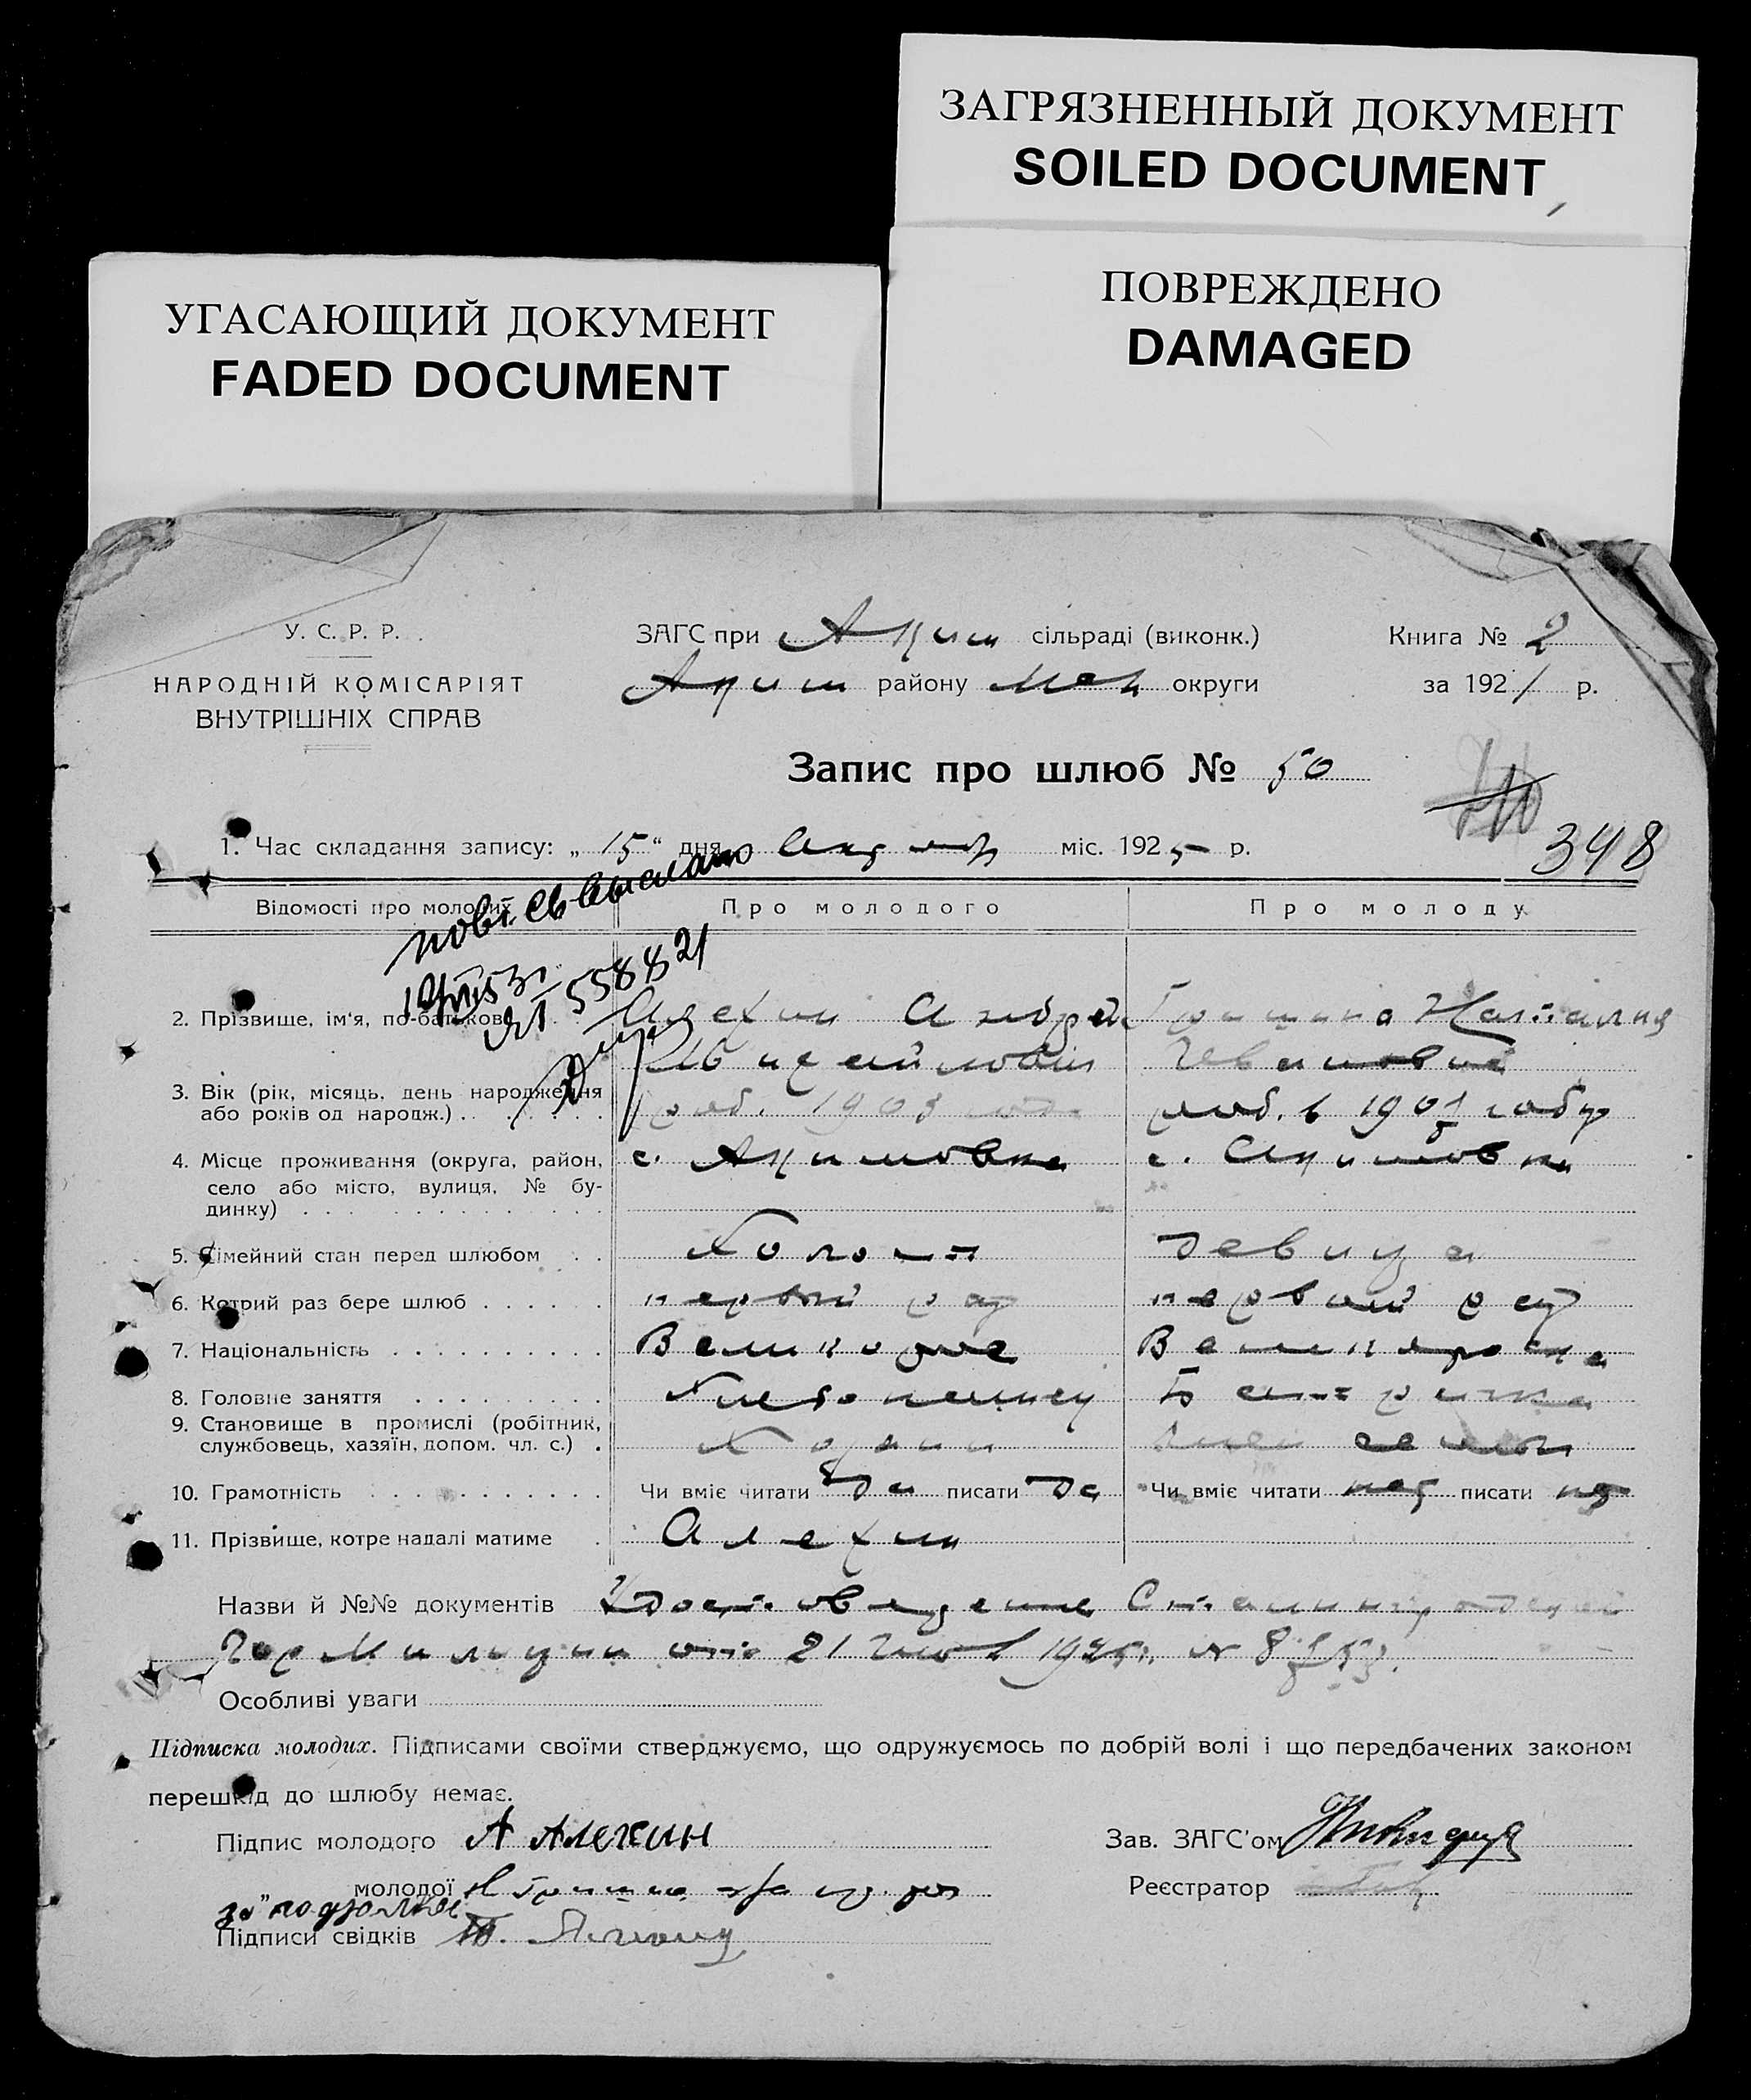 ЗАГРЯЗНЕННЫЙ ДОКУМЕНТ
SOILED DOCUMENT
ПОВРЕЖДЕНО
DAMAGED
УГАСАЮЩИЙ ДОКУМЕНТ
FADED DOCUMENT
У. С. Р. Р.
НАРОДНІЙ КОМІСАРІЯТ
ВНУТРІШНІХ СПРАВ
ЗАГС при Аким сільраді (виконк.)
Аким району Мел округи
Книга № 2
за 192 р.
Запис про шлюб № 50
348
1. Час складання запису: „ 15 “ дня міс. 1925 р.
Відомості про молодих Про молодого Про молоду
2. Прізвище, ім'я, по-батькові Алехин Андрей Гришина Наталия
Михайлович Ивановна
3. Вік (рік, місяць, день народження
або років од народж.) род. 1903 года род. в 190 году
4. Місце проживання (округа, район,
село або місто, вулиця, № бу-
динку) с. Акимовка с. Акимовка
5. Сімейний стан перед шлюбом Холост девица
6. Котрий раз бере шлюб первый раз первый раз
7. Національність Великорос Великороска
8. Головне заняття Хлебопашец
9. Становище в промислі (робітник,
службовець, хазяїн, допом. чл. с.) Хозяин член семьи
10. Грамотність Чи вміє читати Да писати Да Чи вміє читати нет писати нет
11. Прізвище, котре надалі матиме Алехин
Назви й №№ документів Удостоверение
Гор Милиции от 21 1925 г. №
Особливі уваги
Підписка молодих. Підписами своїми стверджуємо, що одружуємось по добрій волі і що передбачених законом
перешкід до шлюбу немає.
Підпис молодого А Алехин
Зав. ЗАГС'ом
молодої Н Гришина
Реєстратор
Підписи свідків